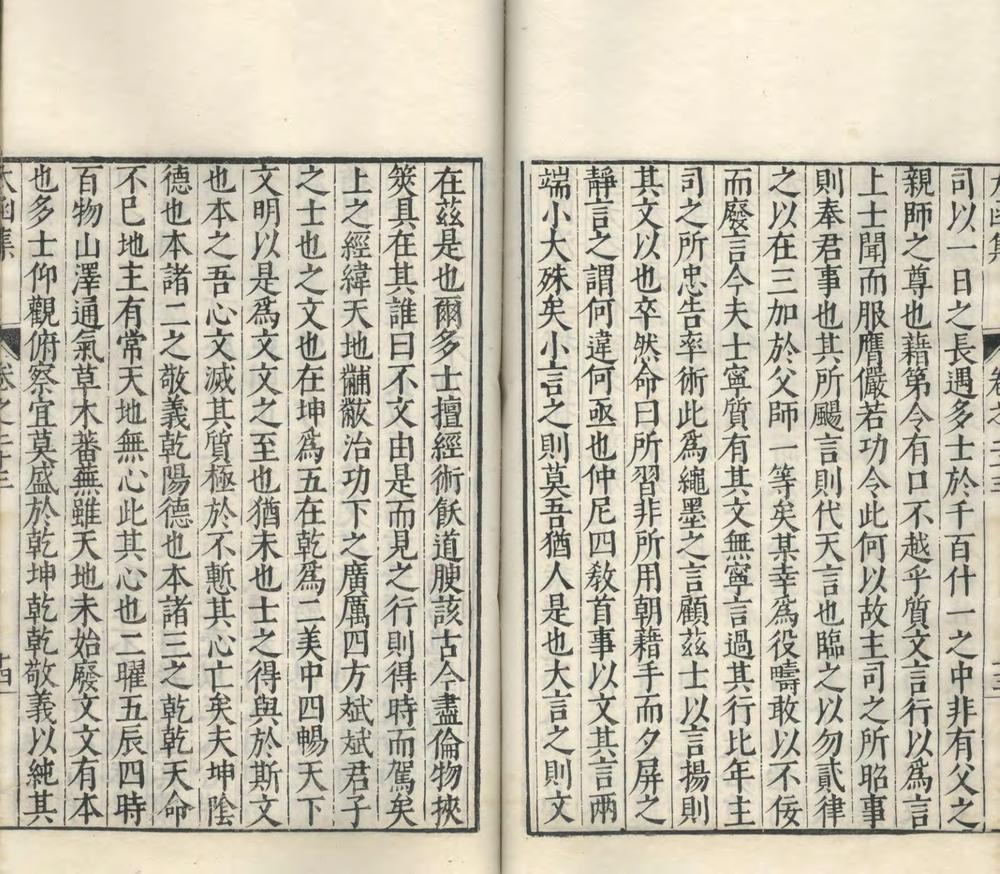 司以一日之長遇多士於千百什一之中非有父之
親師之尊也藉第令有口不越乎質文言行以為言
上士聞而服膺儼若功令此何以故主司之所昭事
則奉君事也其所颺言則代天言也臨之以勿貳律
之以在三加於父師一等矣某幸為役疇敢以不佞
而廢言今夫士寧質有其文無寧言過其行比年主
司之所忠告率術此為繩墨之言顧茲士以言揚則
其文以也卒然命曰所習非所用朝藉手而夕屏之
靜言之謂何違何亟也仲尼四敎首事以文其言兩
端小大殊矣小言之則莫吾猶人是也大言之則文
在茲是也爾多士擅經術飫道腴該古今盡倫物挾
筴具在其誰曰不文由是而見之行則得時而駕矣
上之經緯天地黼黻治功下之廣厲四方斌斌君子
之士也之文也在坤為五在乾為二美中四暢天下
文明以是為文文之至也猶未也士之得與於斯文
也本之吾心文滅其質極於不慙其心亡矣夫坤陰
德也本諸二之敬義乾陽德也本諸三之乾乾天命
不已地主有常天地無心此其心也二曜五辰四時
百物山澤通氣草木蕃蕪雖天地未始廢文文有本
也多士仰觀俯察宜莫盛於乾坤乾乾敬義以純其